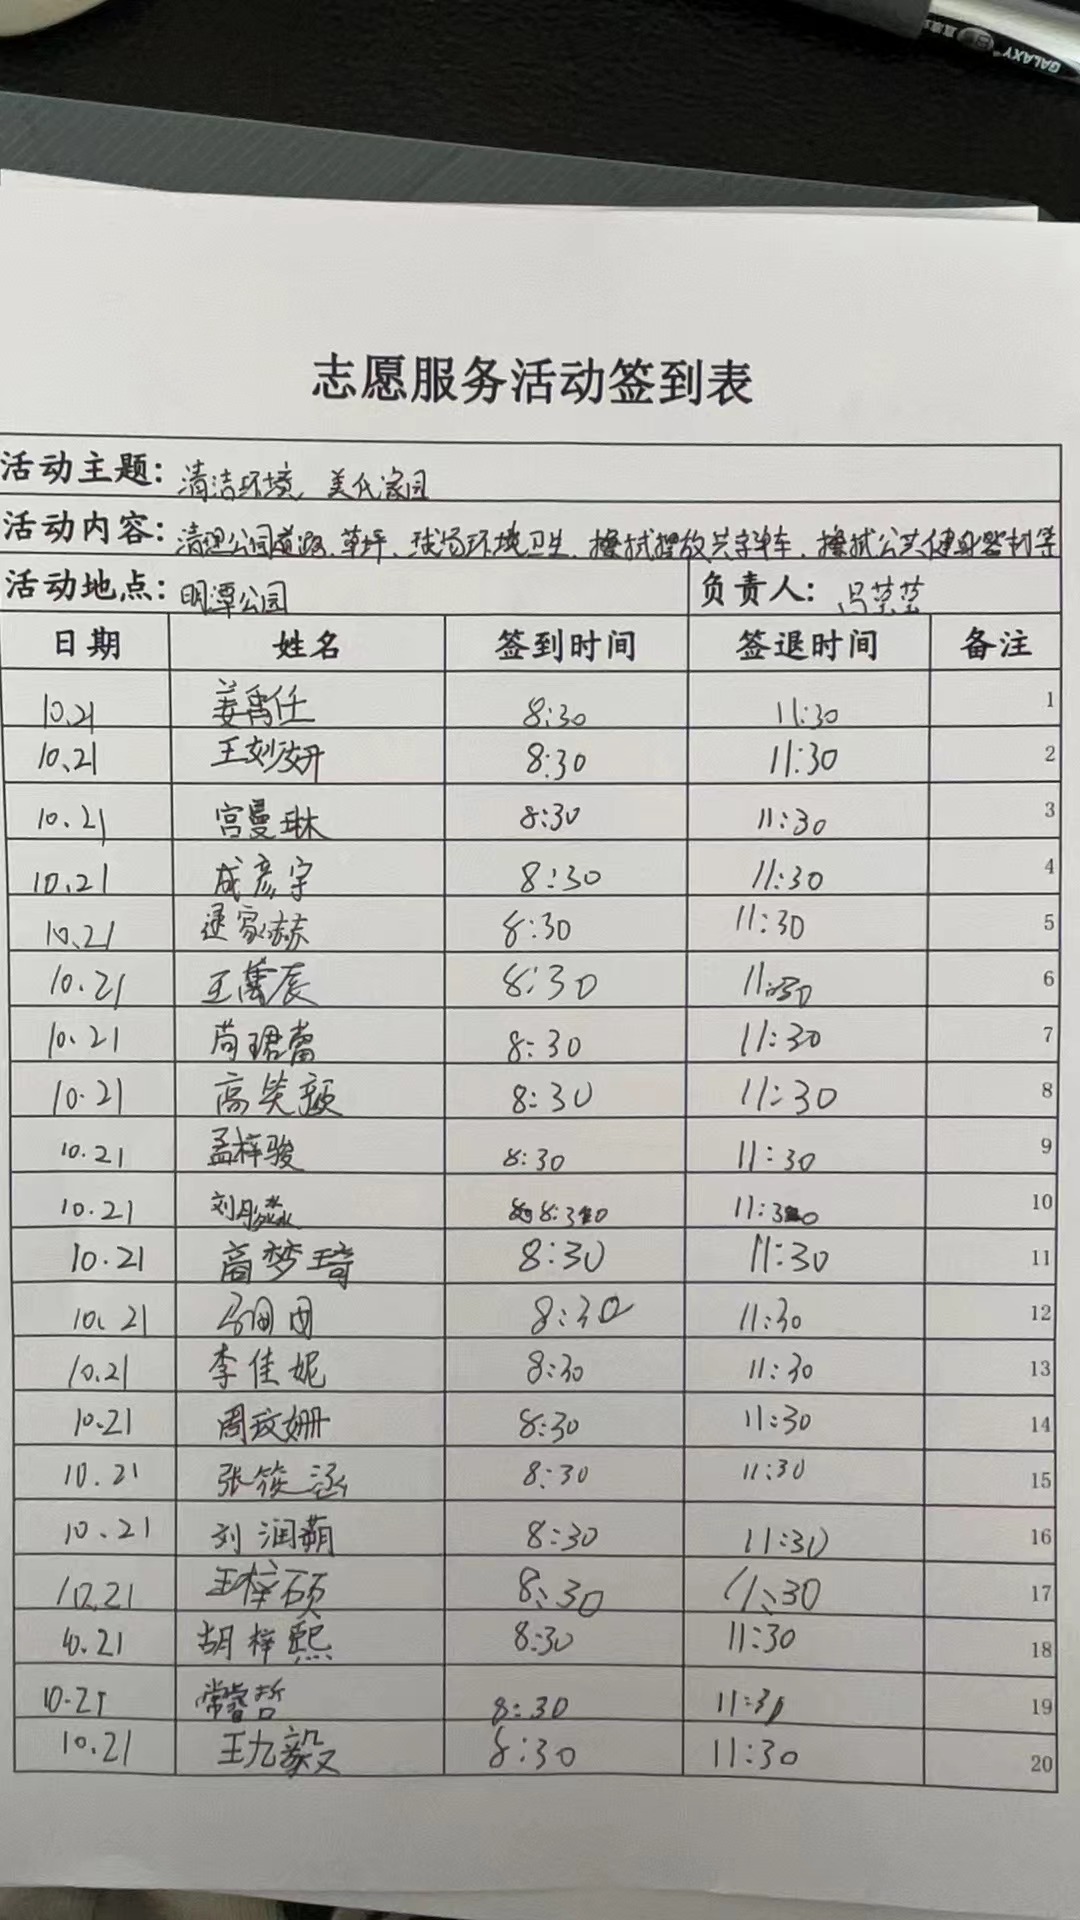 GALAXY
志愿服务活动签到表
活动主题: 清洁环境、美化家园
活动内容: 清理公园道路、草坪、球场环境卫生、擦拭摆放共享单车、擦拭公共健身器材等
活动地点: 明潭公园 负责人: 莹莹
日期 姓名 签到时间 签退时间 备注
10.21 姜禹任 8:30 11:30 1
10.21 王妍 8:30 11:30 2
10.21 宫曼琳 8:30 11:30 3
10.21 成彦宇 8:30 11:30 4
10.21 逯家赫 8:30 11:30 5
10.21 王辰 8:30 11:30 6
10.21 珺蕾 8:30 11:30 7
10.21 高笑颜 8:30 11:30 8
10.21 孟梓骏 8:30 11:30 9
10.21 刘 8:30 11:30 10
10.21 高梦琦 8:30 11:30 11
10.21 8:30 11:30 12
10.21 李佳妮 8:30 11:30 13
10.21 周玟姗 8:30 11:30 14
10.21 张筱涵 8:30 11:30 15
10.21 刘润萌 8:30 11:30 16
10.21 王梓硕 8:30 11:30 17
10.21 胡梓熙 8:30 11:30 18
10.21 常睿哲 8:30 11:30 19
10.21 王九毅 8:30 11:30 20